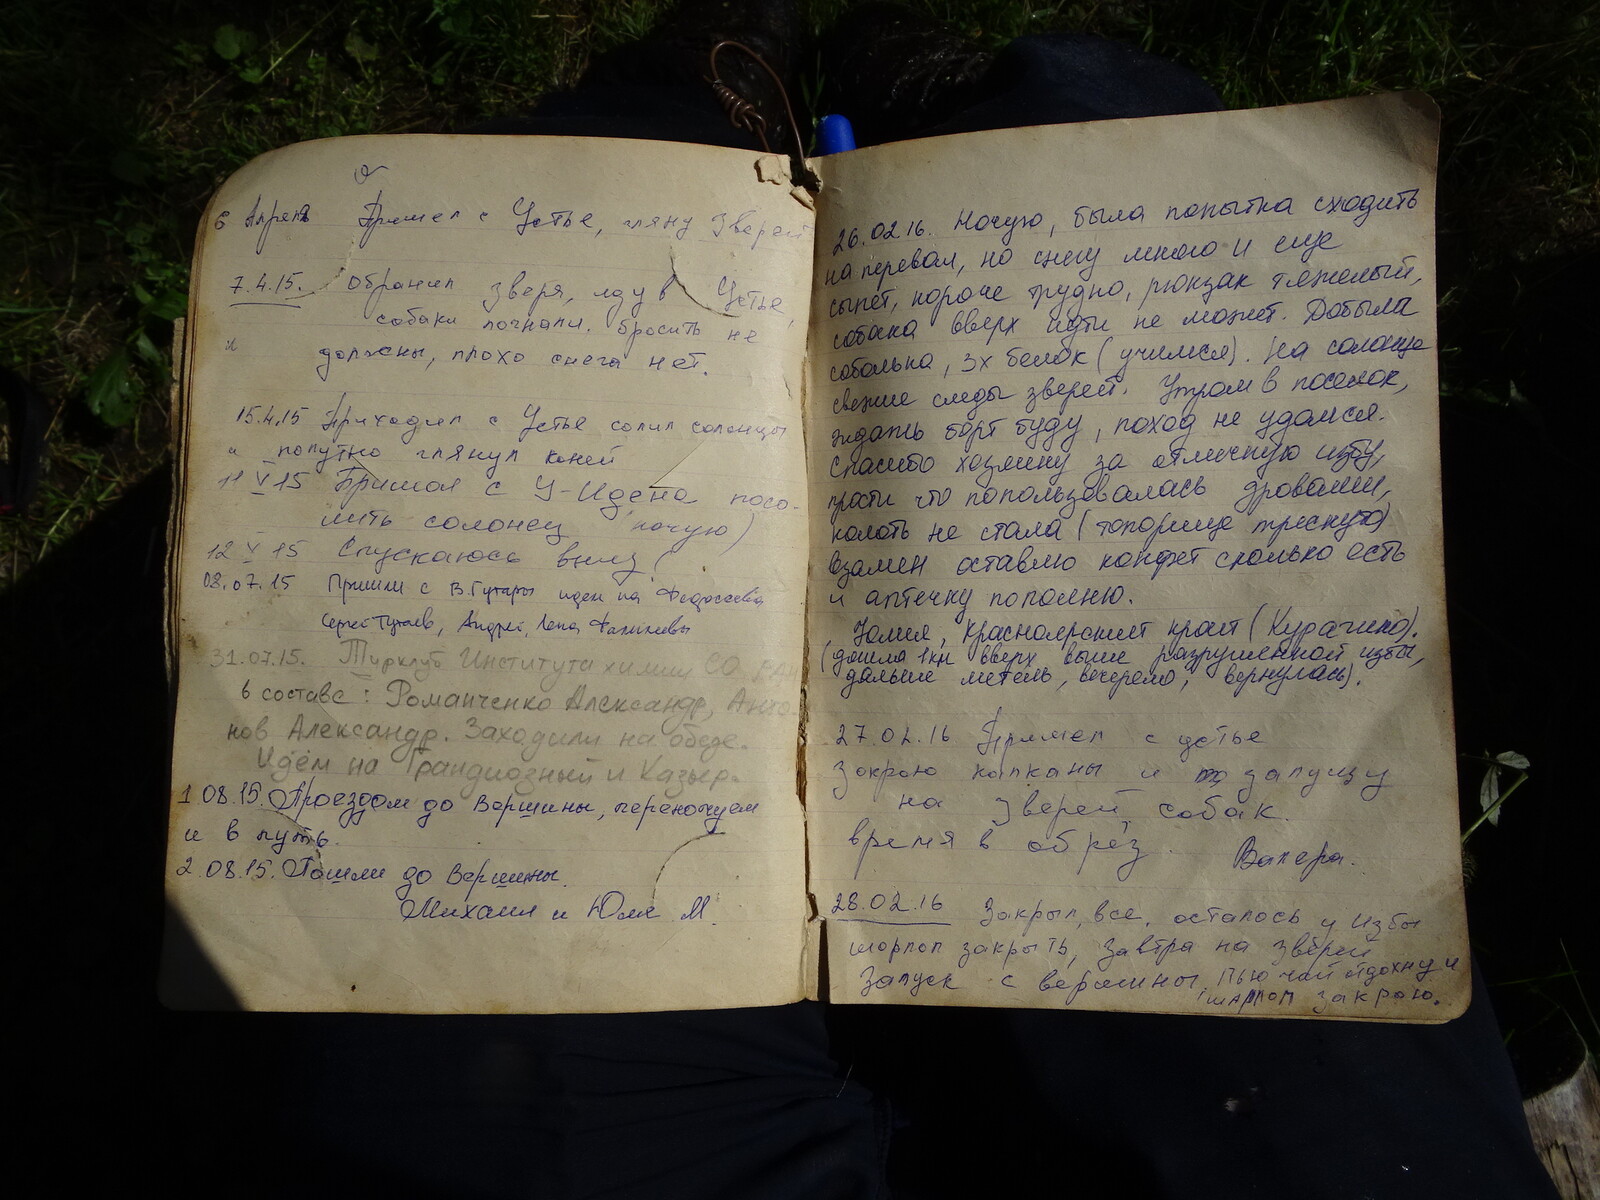 6 Апреля Пришел с Устье, гляну зверей
7.4.15. Обранил зверя, иду в Устье,
собаки погнали. бросить не
должны, плохо снега нет.
15.4.15 Приходил с Устье солил солонцы
и попутно глянул коней
11 V 15 Пришол с У-Идена посо-
лить солонец (ночую)
12 V 15 Спускаюсь вниз!
08.07.15 Пришли с В.Гутары идем на Федосеева
Сергей Андрей, Лена
31.07.15. Турклуб Института химии СО РАН
в составе: Романченко Александр, Анто-
нов Александр. Заходили на обеде.
Идём на Грандиозный и Казыр.
1.08.15. Проездом до Вершины, переночуем
и в путь.
2.08.15. Пошли до Вершины.
Михаил и Юля М.
26.02.16. Ночую, была попытка сходить
на перевал, но снегу много и еще
сыпет, короче трудно, рюкзак тяжелый,
собака вверх идти не может. Добыла
соболька, 3х белок (учимся). На солонце
свежие следы зверей. Утром в поселок,
ждать борт буду, поход не удался.
Спасибо хозяину за отличную избу,
прости что попользовалась дровами,
колоть не стала (топорище треснуто)
Взамен оставлю конфет сколько есть
и аптечку пополню.
Юлия, Красноярский край (Курагино).
(дошла 1км вверх выше разрушенной избы,
дальше метель, вечерело, вернулась).
27.02.16 Пришел с устье
Закрою капканы и запущу
на зверей собак.
время в обрез. Валера.
28.02.16 Закрыл все, осталось у избы
шорпоп закрыть, Завтра на зверей
Запуск с вершины, Пью чай отдохну и
шарпоп закрою.